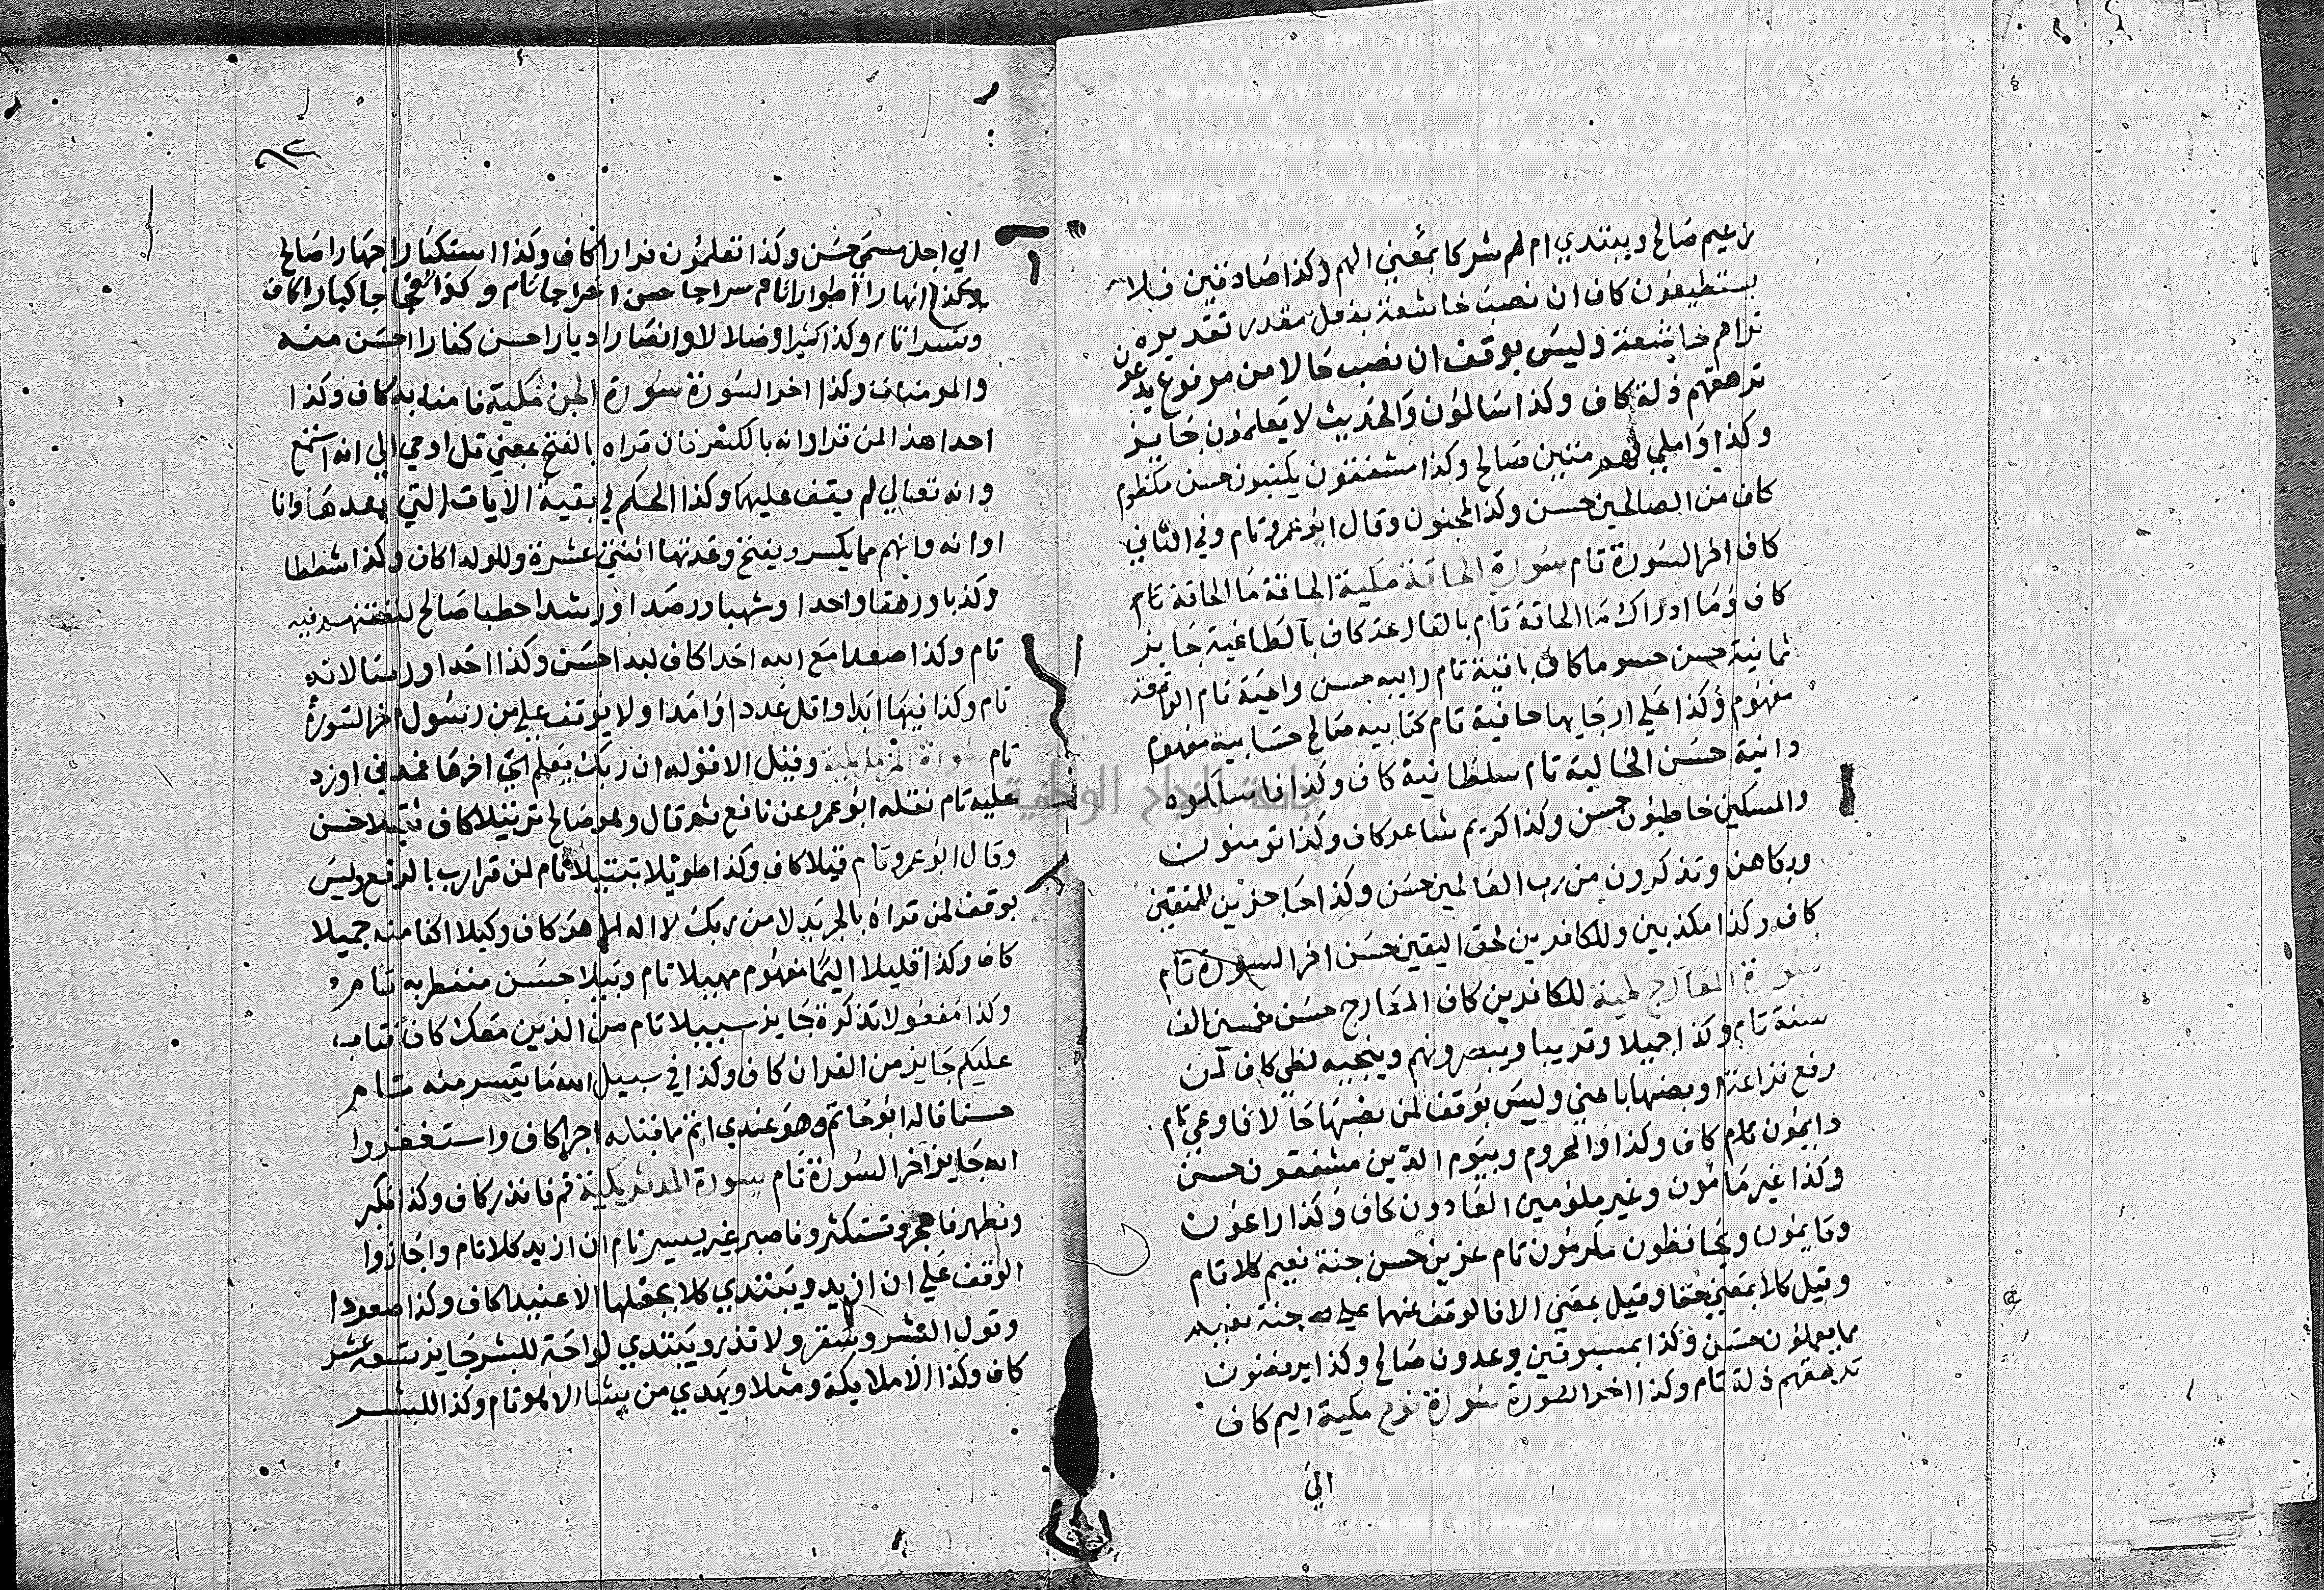 زعيم صالح ويبتدي ام لهم شركا بمعني الهم وكذا صادقين فلا
يستطيعون كاف ان نصب خاشعة بفعل مقدر تقديره
تراهم خاشعة وليس بوقف ان نصب حالا من مرفوع يدعون
ترهقهم ذلة كاف وكذا سالمون والحديث لا يعلمون جايز
وكذا واملي لهم متين صالح وكذا مثقلون يكتبون حسن مكظوم
كاف من الصالحين حسن وكذا لمجنون وقال ابو عمرو تام وفي الثاني
كاف اخر السورة تام سورة الحاقة مكية الحاقة ما الحاقة تام
كاف وما ادراك ما الحاقة تام بالقارعة كاف بالطاغية جايز
ثمانية حسن حسوما كاف باقية تام رابيه حسن واعية تام الواقعة
مفهوم وكذا علي ارجايها خافية تام كتابيه صالح حسابيه مفهوم
دانية حسن الخالية تام سلطانية كاف وكذا فاسلكوه
والمسكين خاطيون حسن وكذا كريم شاعر كاف وكذا تومنون
وبكاهن وتذكرون من رب العالمين حسن وكذا حاجزين للمتقين
كاف وكذا مكذبين وللكافرين لحق اليقين حسن اخر السورة تام
سورة المعارج مكية للكافرين كاف المعارج حسن خمسين الف
سنة تام وكذا جميلا وقريبا ويبصرونهم وينجيه لظي كاف لمن
رفع نزاعة او نصبها باعني وليس بوقف لمن نصبها حالا فاوعي تام
دايمون تام كاف وكذا والمحروم وبيوم الدين مشفقون حسن
وكذا غير مامون وغير ملومين العادون كاف وكذا راعون
وقايمون ويحافظون مكرمون تام عزين حسن جنة نعيم كلا تام
وقيل كلا بمعني حقا وقيل بمعني الا فالوقف عنهما علي جنة نعيم
مما يعلمون حسن وكذا بمسبوقين يوعدون صالح وكذا يوفضون
ترهقهم ذلة تام وكذا اخر السورة سورة نوح مكية اليم كاف
الي
الي اجل مسمي حسن وكذا تعلمون فرارا كاف وكذا استكبارا جهارا صالح
وكذا انهارا اطوارا تام سراجا حسن اخراجا تام وكذا فجاجا كبارا كاف
ونسرا تام وكذا كثيرا وضلالا وانصارا ديارا حسن كفارا احسن منه
والمومنات وكذا اخر السورة سورة الجن مكية فامنا به كاف وكذا
احدا هذا لمن قرا وانه بالكسر فان قراه بالفتح بمعني قل اوحي الي انه استمع
وانه تعالي لم يقف عليهما وكذا الحكم في بقية الايات التي بعدها وانا
اوانه وانهم مما يكسر ويفتح وعدتها اثنتي عشرة وللولدا كاف وكذا شططا
وكذبا ورهقا واحدا وشهبا ورصدا ورشدا حطبا صالح لنفتنهم فيه
تام وكذا صعدا مع الله احدا كاف لبدا حسن وكذا احدا ورسالاته
تام وكذا فيها ابدا واقل عددا وامدا ولا يوقف علي من رسول اخر السورة
تام سورة المزمل مكية وقيل الا قوله ان ربك يعلم الي اخرها فمدني اوزد
عليه تام نقله ابو عمرو عن نافع ثم قال وهو صالح ترتيلا كاف ثقيلا حسن
وقال ابو عمرو تام قيلا كاف وكذا طويلا تبتيلا تام لمن قرا رب بالرفع وليس
بوقف لمن قراه بالجر بدلا من ربك لا اله الا هو كاف وكيلا اكفا منه جميلا
كاف وكذا قليلا اليما مفهوم مهيلا تام وبيلا حسن منفطر به تام
وكذا مفعولا تذكرة جايز سبيلا تام من الذين معك كاف فتاب
عليكم جايز من القران كاف وكذا في سبيل الله ما تيسر منه تام
حسنا قاله ابو حاتم وهو عندي اتم مما قبله اجرا كاف واستغفروا
الله جايز اخر السورة تام سورة المدثر مكية قم فانذر كاف وكذا فكبر
وفطهر فاهجر وتستكثر وفاصبر غير يسير تام ان ازيد كلا تام واجازوا
الوقف علي ان ازيد ويبتدي كلا بجعلها الا عنيدا كاف وكذا صعودا
وقول البشر وسقر ولا تذر ويبتدي لواحة للبشر جايز تسعة عشر
كاف وكذا الا ملايكة ومثلا ويهدي من يشا الا هو تام وكذا للبشر
جامعة النجاح الوطنية